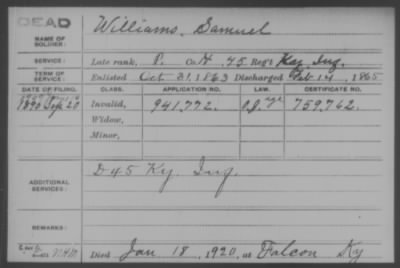 DEAD
NAME OF SOLDIER: Williams, Samuel
SERVICE: Late rank, P. Co. H, 45 Reg't Ky. Inf.
TERM OF SERVICE: Enlisted Oct 31, 1863 Discharged Feb. 14, 1865
DATE OF FILING. CLASS. APPLICATION NO. LAW. CERTIFICATE NO.
1890 Sep 20 Invalid, 941,772. 759,762.
Widow,
Minor,
ADDITIONAL SERVICES: D 45 Ky. Inf.
REMARKS:
Died Jan 18, 1920, at Falcon Ky